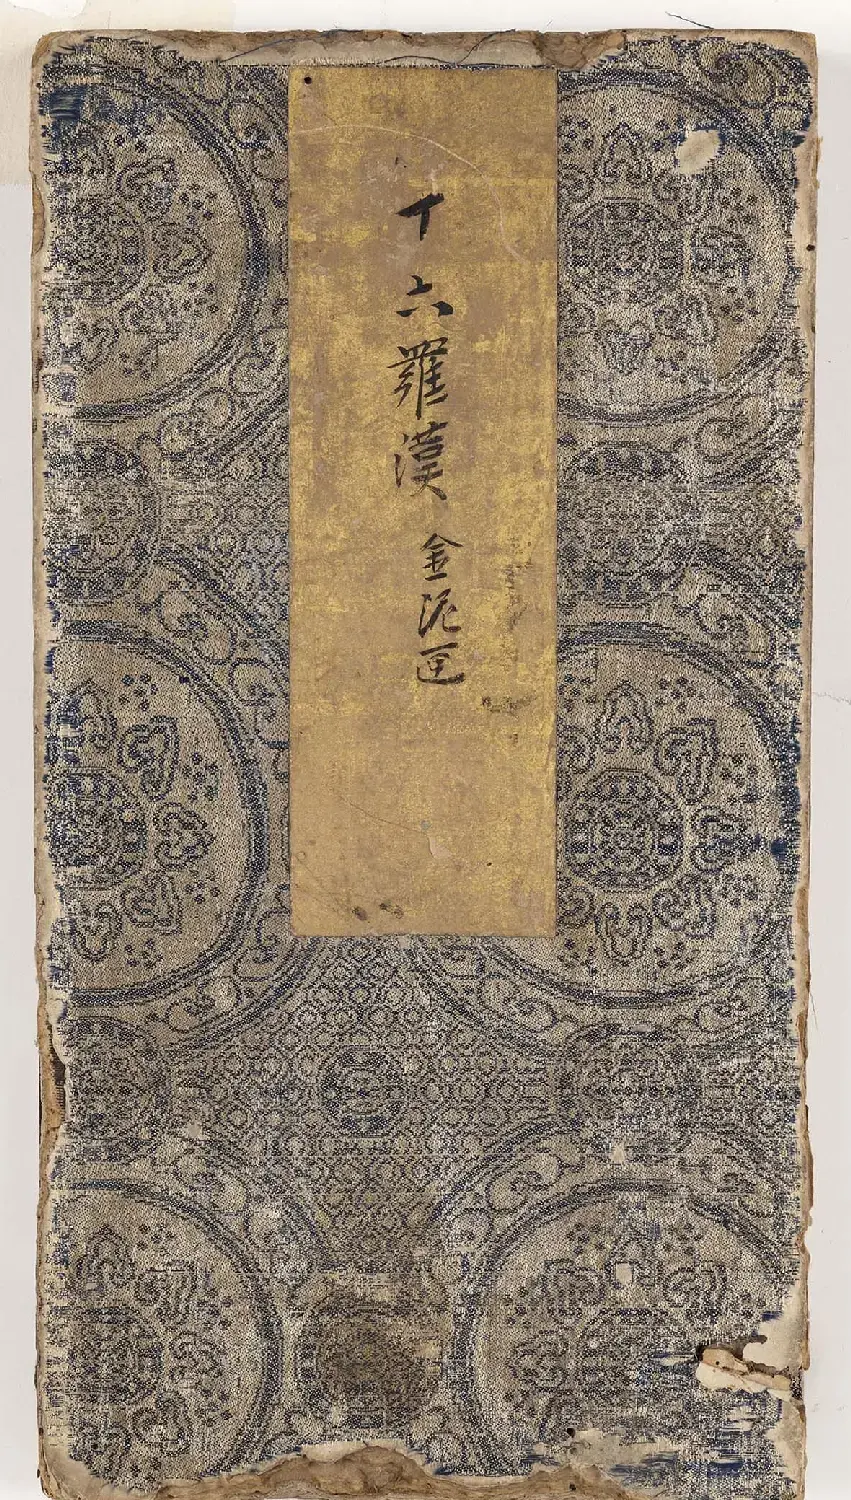 十六羅漢 金泥匣